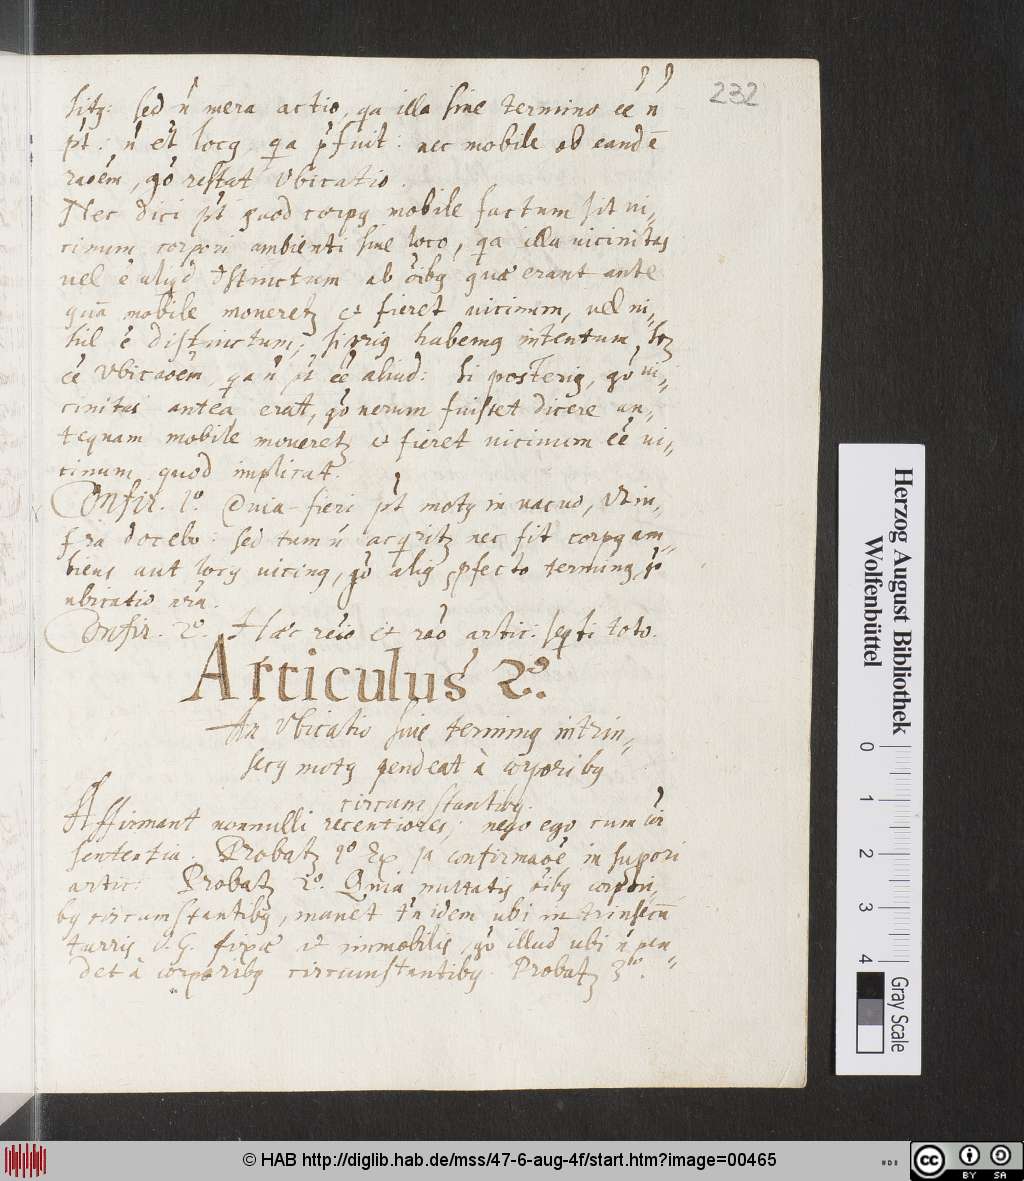 232
sitq: sed n̄ mera actio, qa illa sine termino ēe n̄
pt̄: n̄ ēt locq, qa p̄fuit: nec mobile ob eandē
raōem, gō restat Vbicatio.
Nec dici pt̄ quod corpq mobile factum sit vi„
cinum corpori ambienti sine loco, qa illa vicinitas
vel ē aliqd dstinctum ab oībq quæ erant ante
quā mobile moveretz et fieret vicinum, vel ni„
hil ē distinctum; si priq habemq intentum, scz
ēe Vbicaōem, qa n̄ pt̄ ēe aliud: si posteriq, gō vi„
cinitas antea erat, gō verum fuisset dicere an„
tequam mobile moveretz et fieret vicinum ēe vi„
cinum quod implicat.
Confir. 1º. Quia fieri pt̄ motq in vacuo, vt in„
fra docebo: sed tum n̄ acqritz nec fit corpq am„
biens aut locq vicinq, gō aliq pfecto terminq, gō
ubicatio nrā.
Confir. 2º. Hæc reiō et raō artic: septi toto.
Articulus 2º.
An Vbicatio sive terminq intrin„
secq motq pendeat à corporibq
circumstantibq.
Affirmant nonnulli recentiores; nego ego cum cōi
sententia. Probatz 1º Ex 1a confirmaōe in supori
artic: Probatz 2º. Quia mutatis oībq corpori„
bq circumstantibq, manet tn̄ idem ubi intrinsecū
turris V.G. fixæ et immobilis, gō illud ubi n̄ pen„
det à corporibq circumstantibq. Probatz 3º.
Herzog August Bibliothek
Wolfenbüttel
0 1 2 3 4
Gray Scale
© HAB http://diglib.hab.de/mss/47-6-aug-4f/start.htm?image=00465
cc BY SA